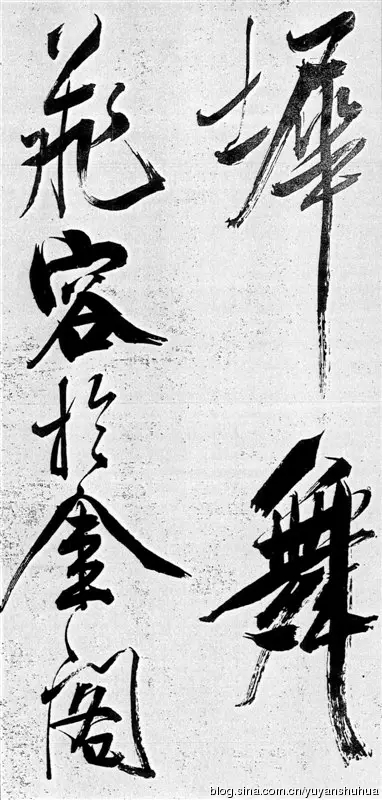 墀舞
飛容於金閣
blog.sina.com.cn/yuyanshuhua